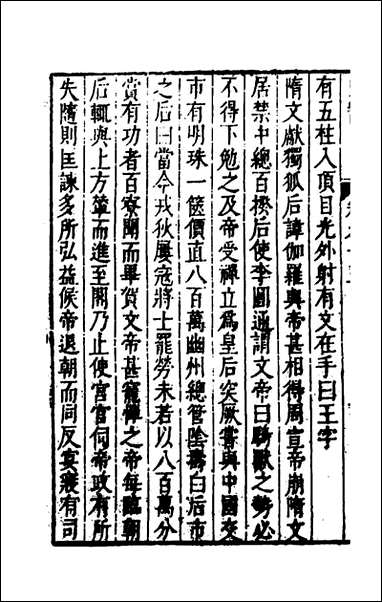 有五柱入頂目光外射有文在手曰王字
隋文獻獨狐后諱伽羅與帝甚相得周宣帝崩隋文
居禁中總百揆后使李圓通謂文帝曰騎獸之勢必
不得下勉之及帝受禪立為皇后突厥嘗與中國交
市有明珠一篋價直八百萬幽州總管陰壽曰后市
之后曰當今戎狄屢寇將士罷勞未若以八百萬分
賞有功者百寮聞而畢賀文帝甚寵憚之帝每臨朝
后輒與上方輦而進至閤乃止使宮官伺帝政有所
失隨則匡諫多所弘益候帝退朝而同反宴寢有司